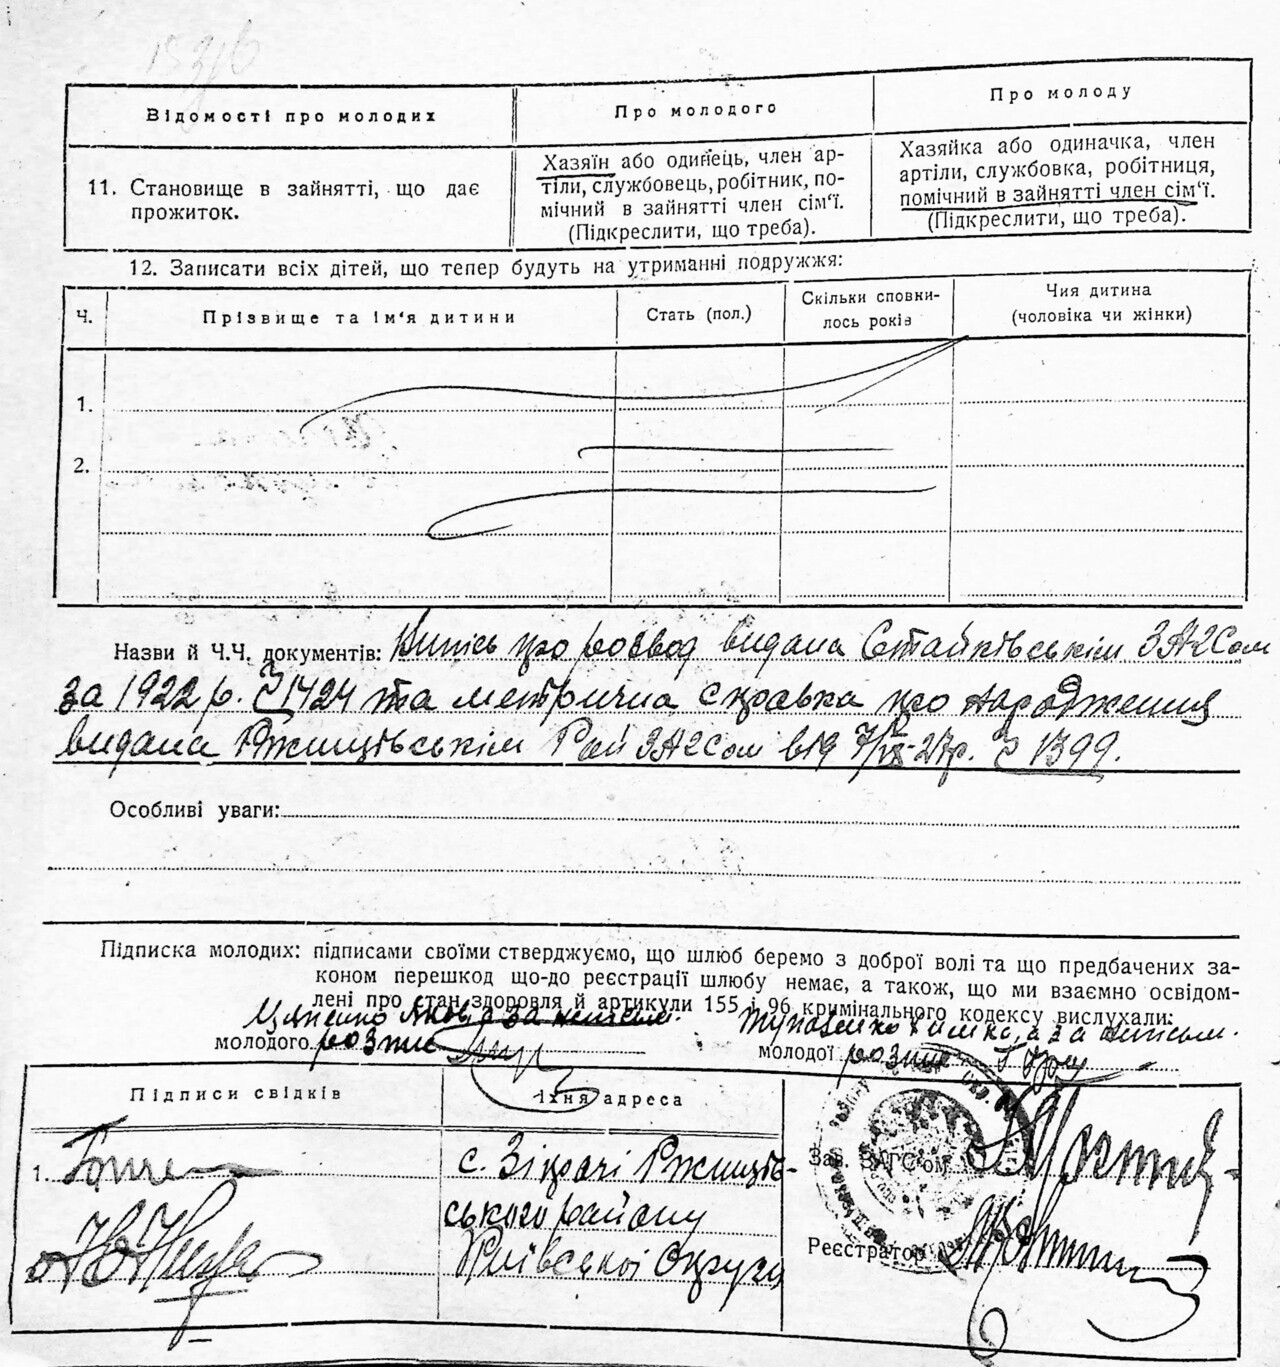 Відомості про молодих
Про молодого
Про молоду
11. Становище в зайнятті, що дає
прожиток.
Хазяїн або одинець, член ар-
тіли, службовець, робітник, по-
мічний в зайнятті член сім'ї.
(Підкреслити, що треба).
Хазяйка або одиначка, член
артіли, службовка, робітниця,
помічний в зайнятті член сім'ї.
(Підкреслити, що треба).
12. Записати всіх дітей, що тепер будуть на утриманні подружжя:
Ч.
Прізвище та ім'я дитини
Стать (пол.)
Скільки сповни-
лось років
Чия дитина
(чоловіка чи жінки)
1.
2.
Назви й Ч.Ч. документів: Випісь про розвод видана Стайківським ЗАГСом
за 1922 р. Ч 1424 та метрична справка про народження
видана Ржищівським Рай ЗАГСом від 7/ІХ-27р. Ч 1399.
Особливі уваги:
Підписка молодих: підписами своїми стверджуємо, що шлюб беремо з доброї волі та що предбачених за-
коном перешкод що-до реєстрації шлюбу немає, а також, що ми взаємно освідом-
лені про стан здоровля й артикули 155 і 96 кримінального кодексу вислухали:
Яков, а за неписьм.
а за неписьм.
молодого розпис
молодої розпис
Підписи свідків
Їхня адреса
1.
с. Зікрачі Ржищів-
ського району
Київської Округи
Зав. ЗАГС'ом
Реєстратор